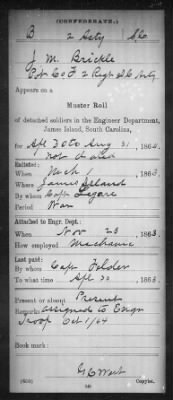 (CONFEDERATE.)
B 2 Arty S C
J. M. Brickle
Pvt Co F 2 Regt S C Arty
Appears on a
Muster Roll
of detached soldiers in the Engineer Department,
James Island, South Carolina,
for Apl 30 to Aug 31, 1864.
not dated
Enlisted:
When Mch 1, 186
Where James Island
By whom Capt Legare
Period War
Attached to Engr. Dept.:
When Nov 23, 1863.
How employed Mechanic
Last paid:
By whom Capt
To what time Apl 30, 186
Present or absent Present
Remarks: assigned to Engr
Troop Oct 1/64
Book mark:
Copyist.